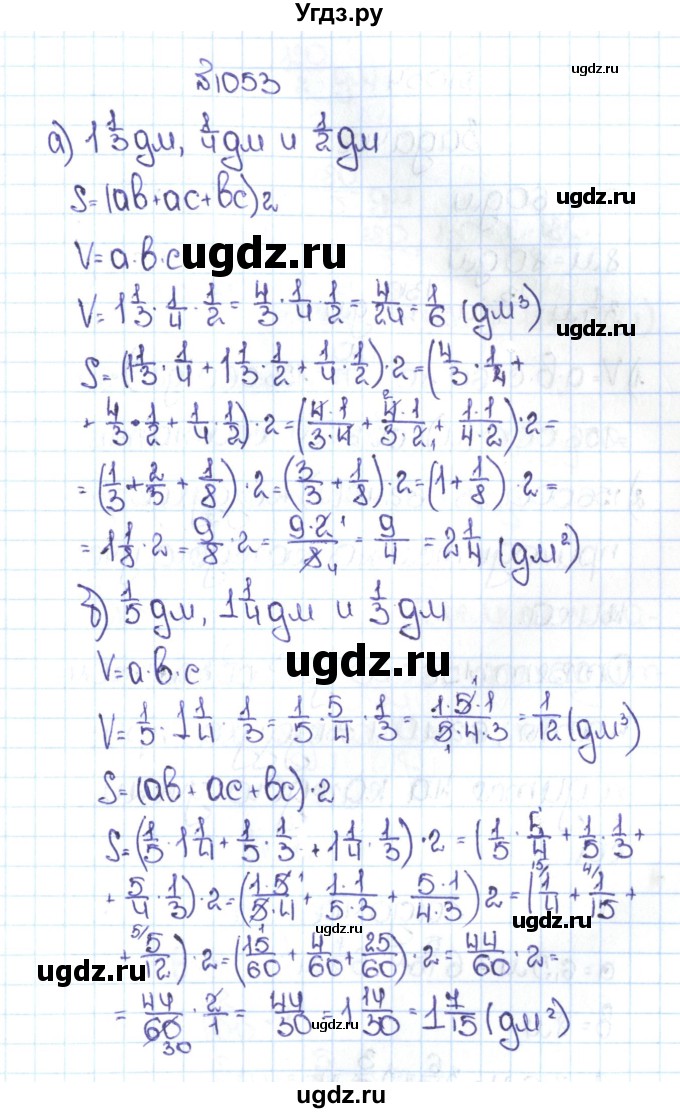 Угдз.ру
№1053
ugdz.ru
а) 1 1/3 дм, 1/4 дм и 1/2 дм
S=(ab+ac+bc)2
ugdz.ru
V=a·b·c
ugdz.ru
V=1 1/3·1/4·1/2=4/3·1/4·1/2=4/24=1/6 (дм³)
ugdz.ru
S=(1 1/3·1/4+1 1/3·1/2+1/4·1/2)·2=(4/3·1/4+
+4/3·1/2+1/4·1/2)·2=(4·1/3·4+4·1/3·2+1·1/4·2)·2=
=(1/3+2/3+1/8)·2=(3/3+1/8)·2=(1+1/8)·2=
=1 1/8·2=9/8·2=9·2/8=9/4=2 1/4 (дм²)
б) 1/5 дм, 1 1/4 дм и 1/3 дм
V=a·b·c
ugdz.ru
V=1/5·1 1/4·1/3=1/5·5/4·1/3=1·5·1/5·4·3=1/12 (дм³)
S=(ab+ac+bc)·2
S=(1/5·1 1/4+1/5·1/3+1 1/4·1/3)·2=(1/5·5/4+1/5·1/3+
+5/4·1/3)·2=(1·5/5·4+1·1/5·3+5·1/4·3)2=(1/4+1/15+
ugdz.ru
+5/12)·2=(15/60+4/60+25/60)·2=44/60·2=
ugdz.ru
=44/60·2/1=44/30=1 14/30=1 7/15 (дм²)
ugdz.ru